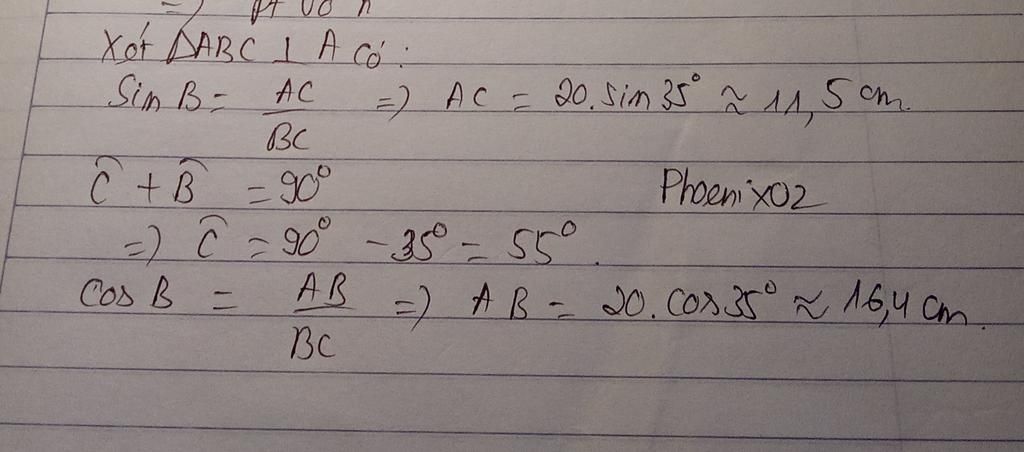 =) pt vô n
Xét ΔABC ⊥ A có:
Sin B = AC/BC =) AC = 20.sin 35° ≈ 11,5 cm.
Ĉ + B̂ = 90°
Phoenix02
=) Ĉ = 90° - 35° = 55°.
cos B = AB/BC =) AB = 20.cos35° ≈ 16,4 cm.